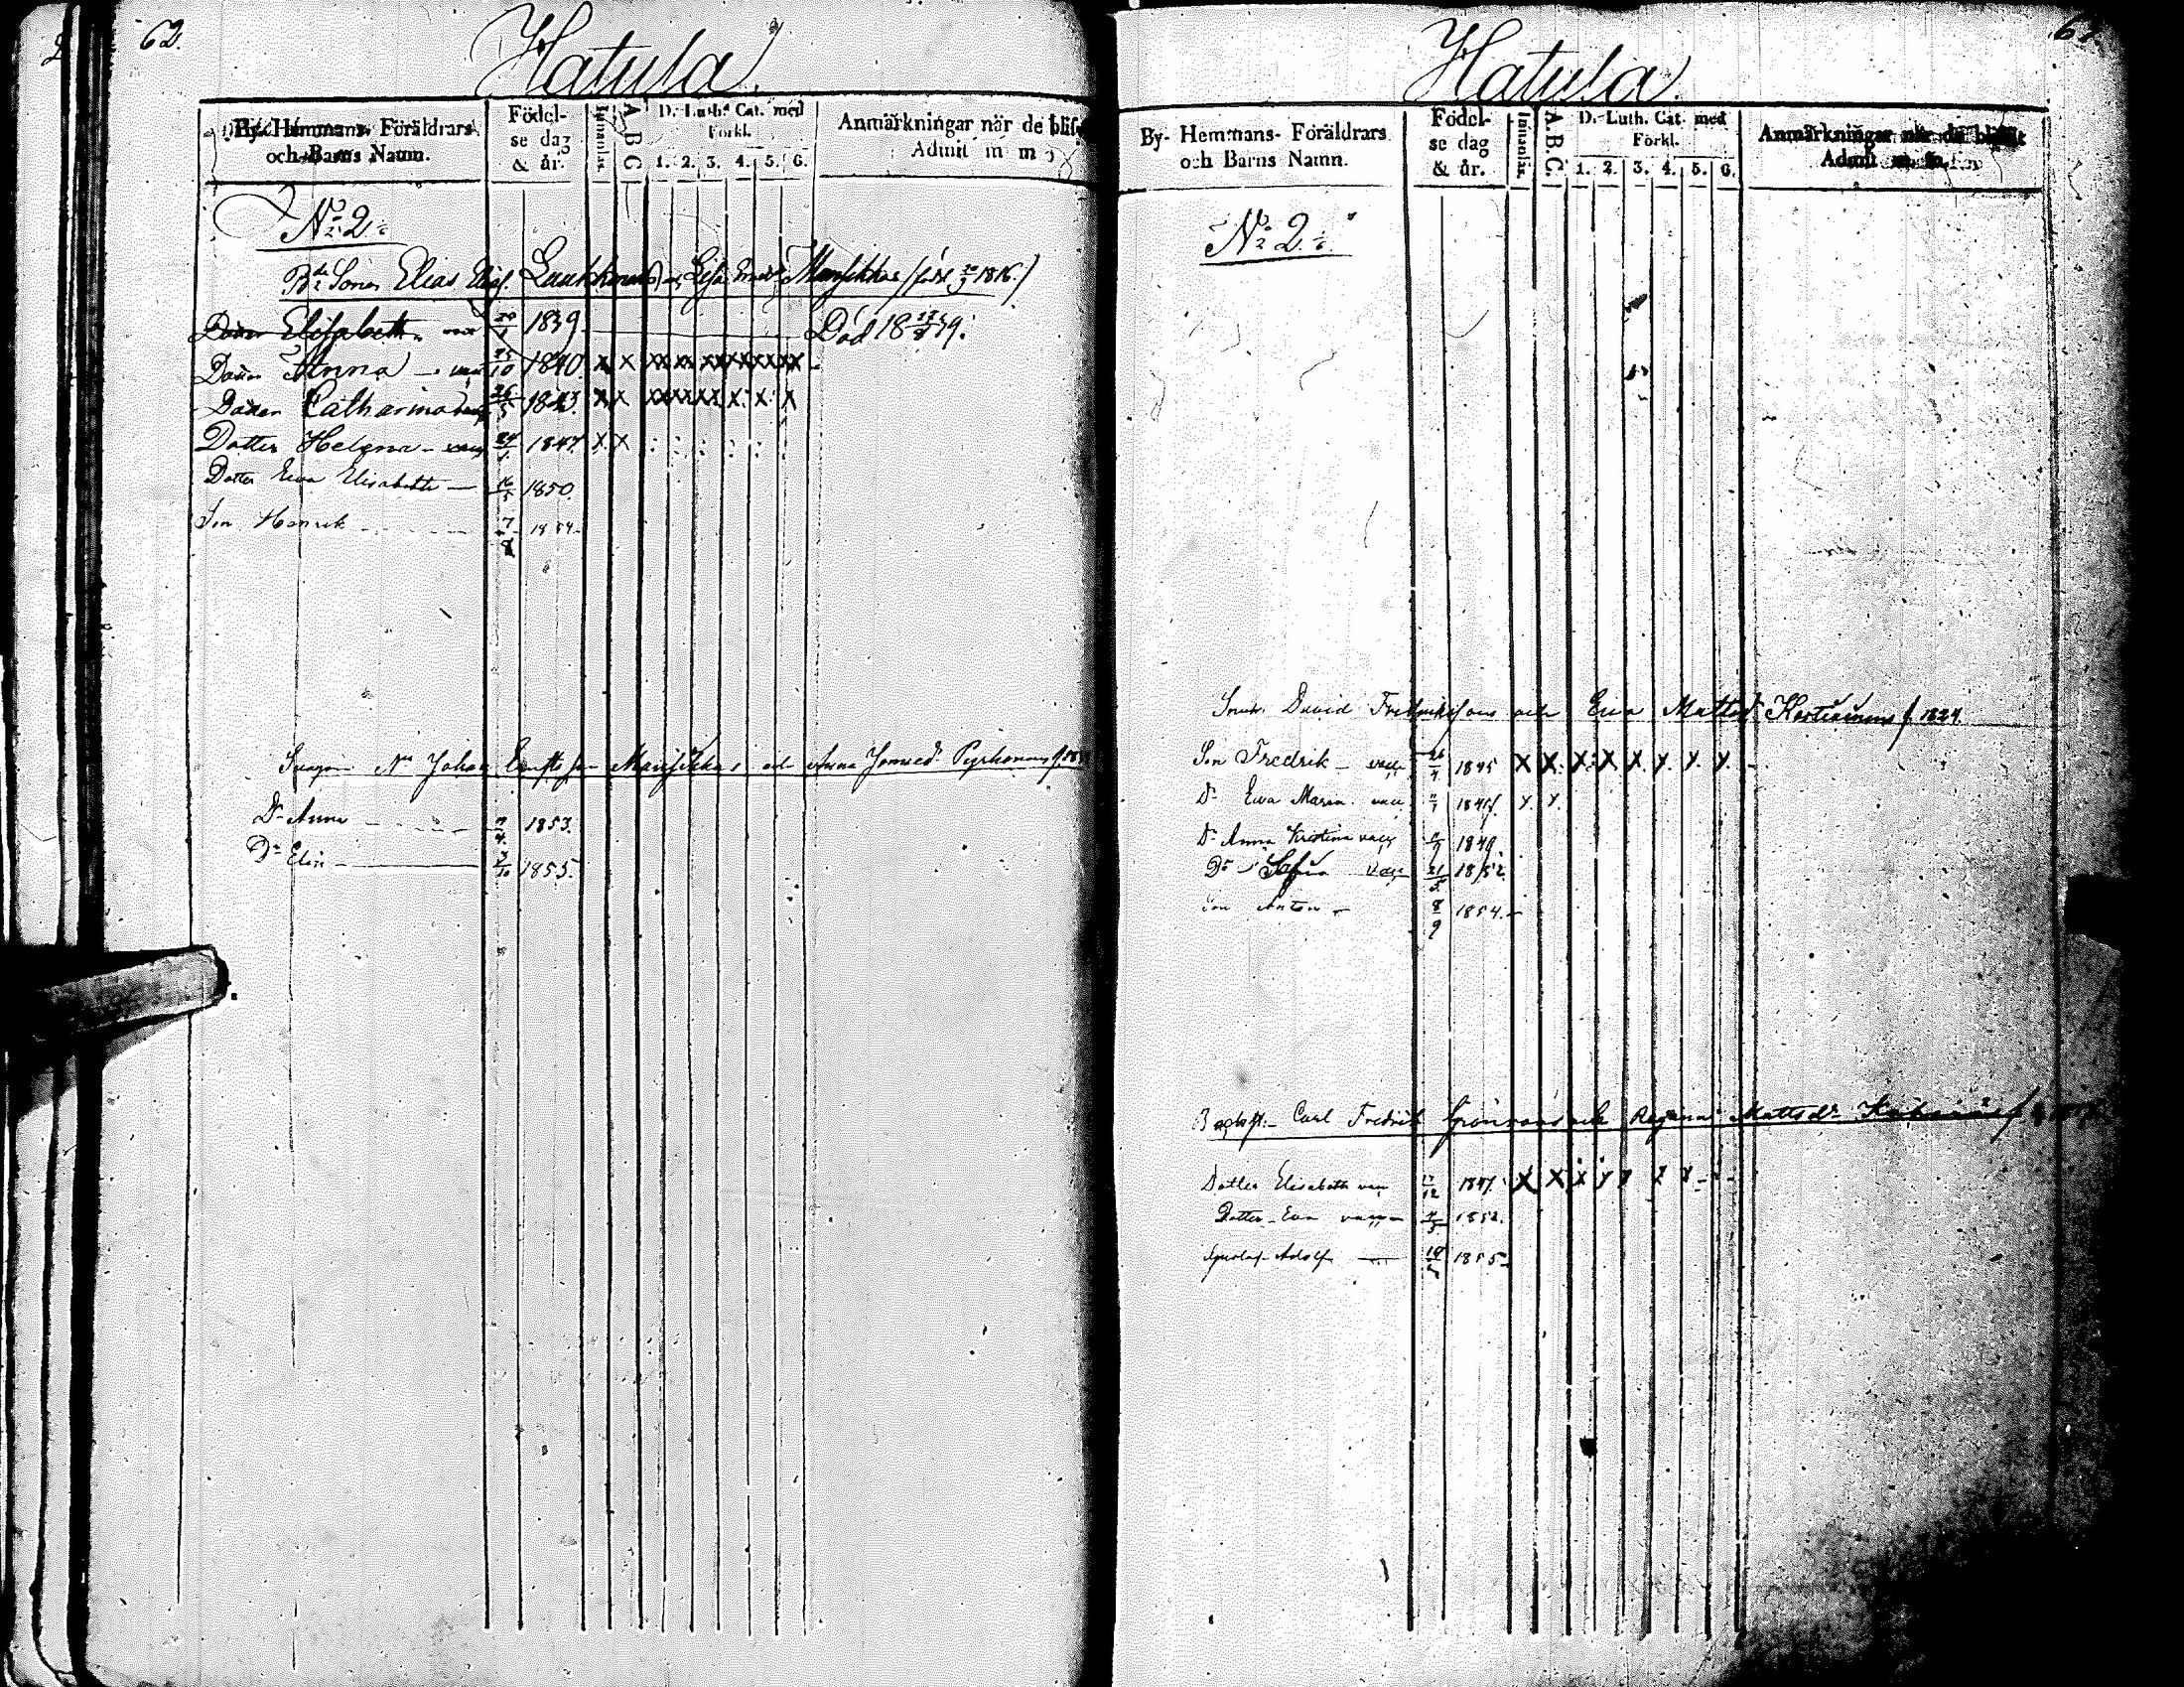 62.
Hatula
By- Hemmans- Föräldrars
och Barns Namn.
Födel-
se dag
& år.
A B C
D. Luth. Cat. med
Förkl.
1. 2. 3. 4. 5. 6.
Anmärkningar när de blifv
Admit m m
No 2.
Elias Laukkanen Lisa Mansikka 1816.
Elisabeth 1839 Död
Dotter Anna 10 1840 x x xx xx xx xx xx xx
Catharina 1843 x x xx xx xx x x x
Dotter Helena 1847 x x
Dotter Ewa Elisabeth 16/5 1850
Son Henrik 7 1854
Johan Mansikka och Anna Pyrhönen
Dr Anna 1853.
Dr Elin 1855.
Hatula
By- Hemmans- Föräldrars
och Barns Namn.
Födel-
se dag
& år.
Innanläs.
A.B.C.
D. Luth. Cat. med
Förkl.
1. 2. 3. 4. 5. 6.
Anmärkningar när de
Admit
No 2.
David Fredrikson och Ewa Mattsdr f. 1824.
Son Fredrik vacc 26/4 1845 x x x x x x x x
Dr Ewa Maria vacc x x
Dr Anna Kristina vacc 1849
Dr Sofia vacc 21/5 1852
Son Anton 8/9 1854.
Carl Fredrik Grönroos och Regina Mattsdr
Dotter Elisabeth vacc 12 1847. x x x x x x x
Dotter Ewa 1852.
Gustaf Adolf 1855